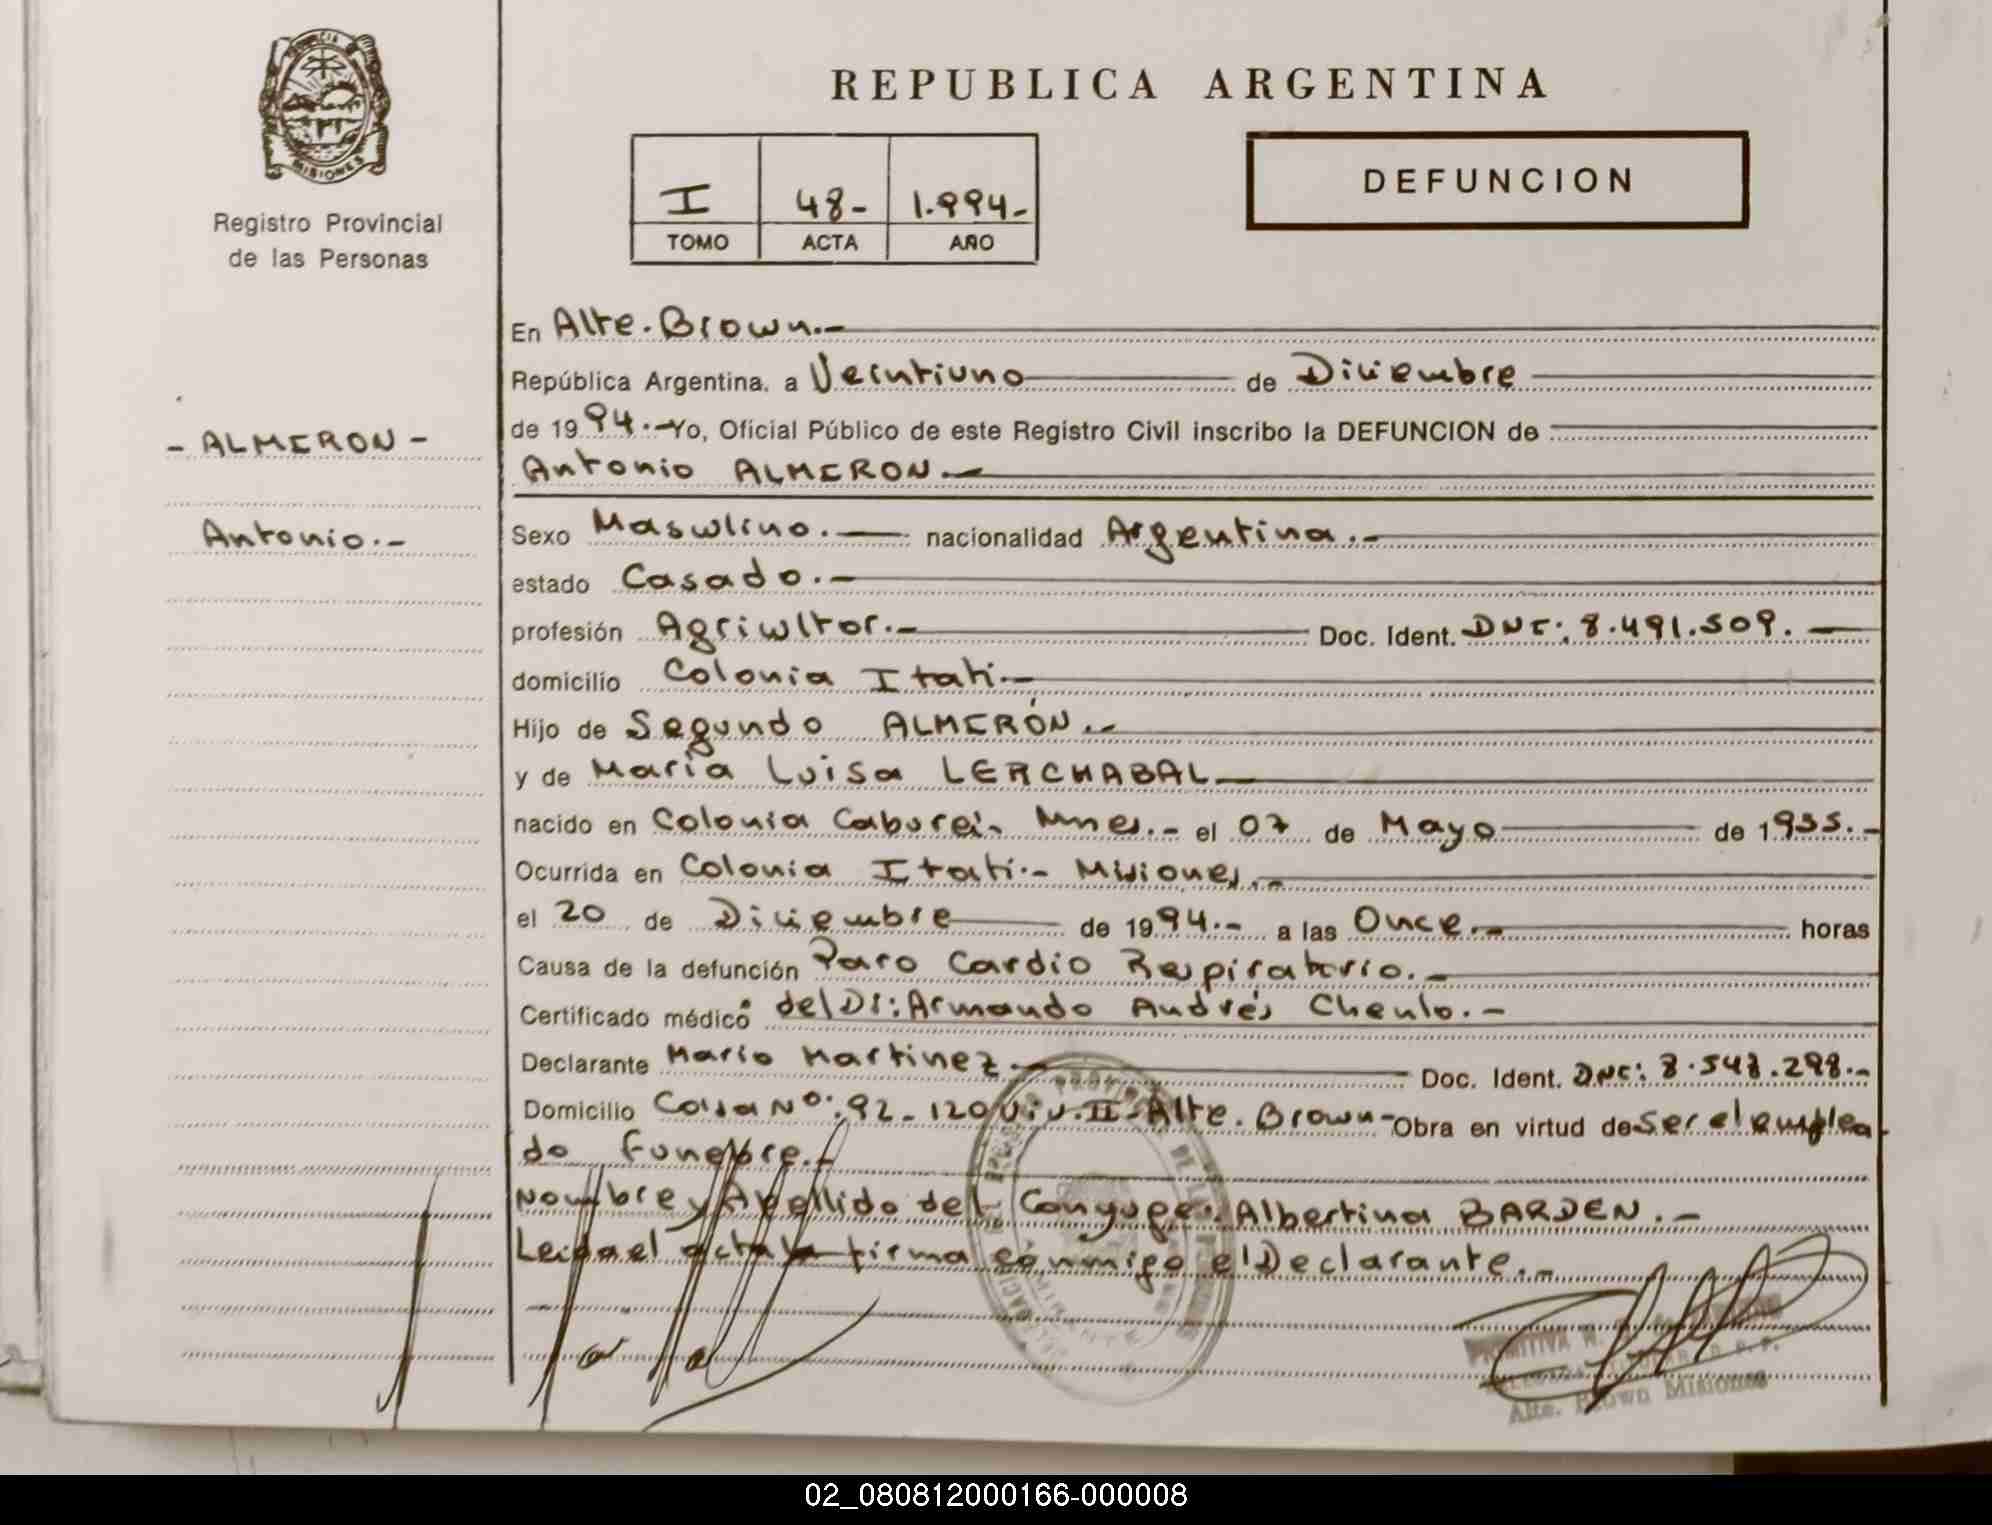 PROVINCIA DE
MISIONES
Registro Provincial
de las Personas
REPUBLICA ARGENTINA
I 48- 1.994-
TOMO ACTA AÑO
DEFUNCION
- ALMERON -
Antonio.-
En Alte. Brown.-
República Argentina, a Veintiuno de Diciembre
de 1994.- Yo, Oficial Público de este Registro Civil inscribo la DEFUNCION de
Antonio ALMERON.-
Sexo Masculino.- nacionalidad Argentina.-
estado Casado.-
profesión Agricultor.- Doc. Ident. DNI: 8.491.509.-
domicilio Colonia Itati.-
Hijo de Segundo ALMERÓN.-
y de María Luisa LERCHABAL-
nacido en Colonia Caburei. Mnes.- el 07 de Mayo de 1955.-
Ocurrida en Colonia Itatí.- Misiones.-
el 20 de Diciembre de 1994.- a las Once.- horas
Causa de la defunción Paro Cardio Respiratorio.-
Certificado médico del Dr: Armando Andrés Chenlo.-
Declarante Mario Martinez.- Doc. Ident. DNI: 8.548.298.-
Domicilio Casa Nº: 92-120 Viv. II-Alte. Brown- Obra en virtud de ser el emplea
do funebre.-
Nombre y Apellido del Conyuge: Albertina BARDEN.-
Leida el acta la firma conmigo el Declarante.-
PRIMITIVA
Alte. Brown Misiones
02_080812000166-000008